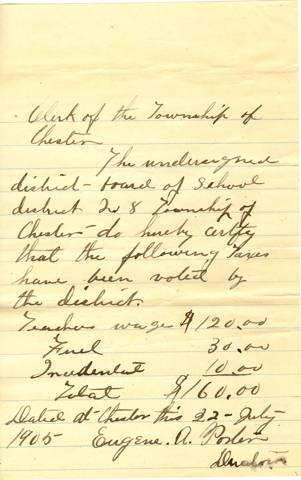 Clerk of the Township of
Chester
The undersigned
district board of School
district No 8 Township of
Chester do hereby certify
that the following taxes
have been voted by
the district.
Teachers wage $120.00
Fuel 30.00
Incidental 10.00
Total $160.00
Dated at Chester this 22 July
1905 Eugene. A. Porter
Director